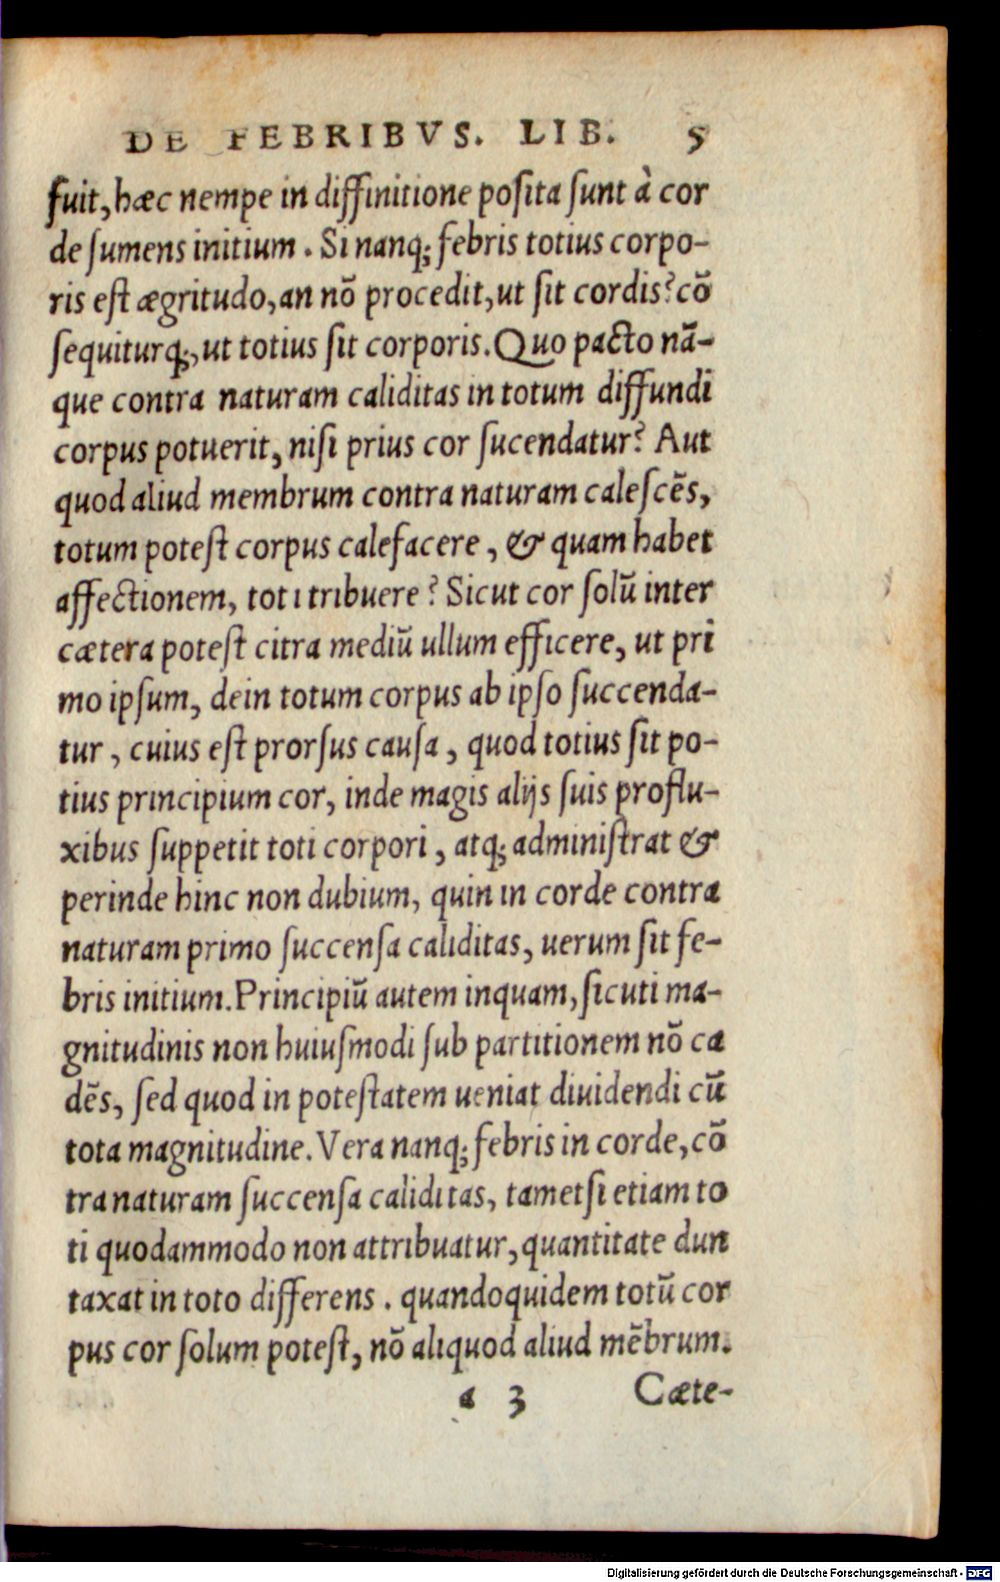 DE FEBRIBVS. LIB. 5
fuit, hæc nempe in diffinitione posita sunt à cor
de sumens initium. Si nanq; febris totius corpo-
ris est ægritudo, an nõ procedit, ut sit cordis? cõ
sequiturq;, ut totius sit corporis. Quo pacto nã-
que contra naturam caliditas in totum diffundi
corpus potuerit, nisi prius cor sucendatur? Aut
quod aliud membrum contra naturam calescẽs,
totum potest corpus calefacere, & quam habet
affectionem, toti tribuere? Sicut cor solũ inter
cætera potest citra mediũ ullum efficere, ut pri
mo ipsum, dein totum corpus ab ipso succenda-
tur, cuius est prorsus causa, quod totius sit po-
tius principium cor, inde magis alijs suis proflu-
xibus suppetit toti corpori, atq; administrat &
perinde hinc non dubium, quin in corde contra
naturam primo succensa caliditas, uerum sit fe-
bris initium. Principiũ autem inquam, sicuti ma-
gnitudinis non huiusmodi sub partitionem nõ ca
dẽs, sed quod in potestatem ueniat diuidendi cũ
tota magnitudine. Vera nanq; febris in corde, cõ
tra naturam succensa caliditas, tametsi etiam to
ti quodammodo non attribuatur, quantitate dun
taxat in toto differens. quandoquidem totũ cor
pus cor solum potest, nõ aliquod aliud mẽbrum.
a 3 Cæte-
Digitalisierung gefördert durch die Deutsche Forschungsgemeinschaft - DFG